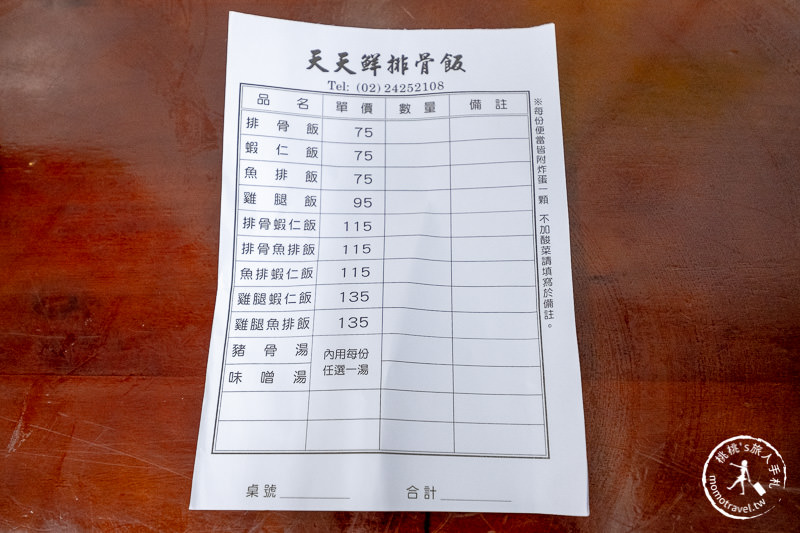 天天鮮排骨飯
Tel: (02)24252108
品名 單價 數量 備註
排骨飯 75
蝦仁飯 75
魚排飯 75
雞腿飯 95
排骨蝦仁飯 115
排骨魚排飯 115
魚排蝦仁飯 115
雞腿蝦仁飯 135
雞腿魚排飯 135
豬骨湯 內用每份
味噌湯 任選一湯
※每份便當皆附炸蛋一顆 不加酸菜請填寫於備註。
桌號________ 合計________
桃桃's旅人手札
momotravel.tw